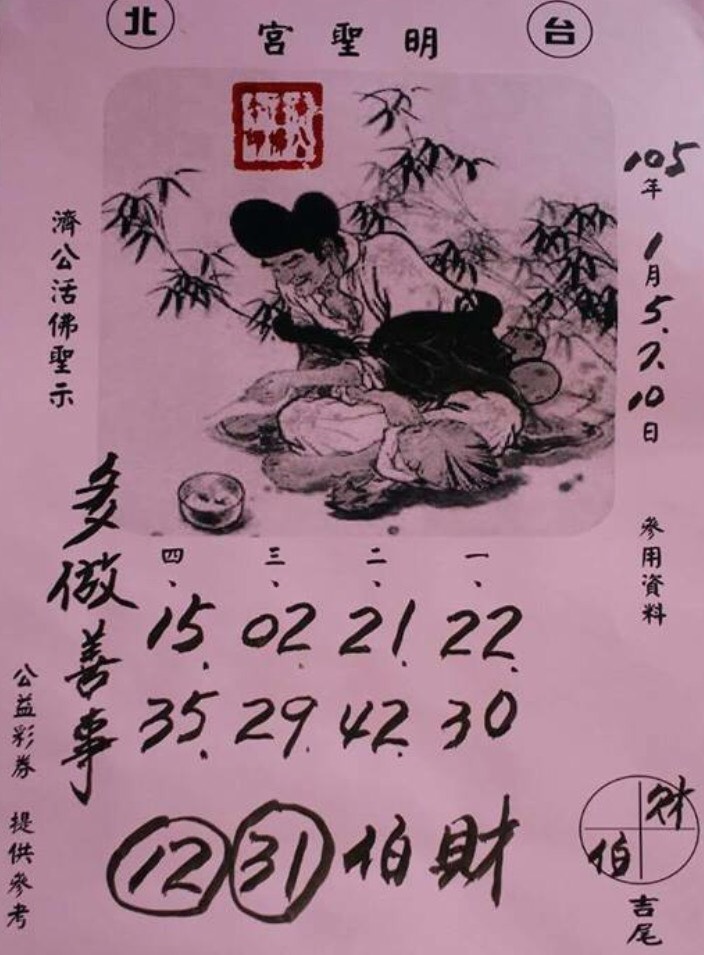 台北
明聖宮
105年1月5.7.10日 參用資料
濟公活佛聖示
一、22.30
二、21.42
三、02.29
四、15.35
多做善事
財伯 31 12
公益彩券 提供參考
財伯
吉尾